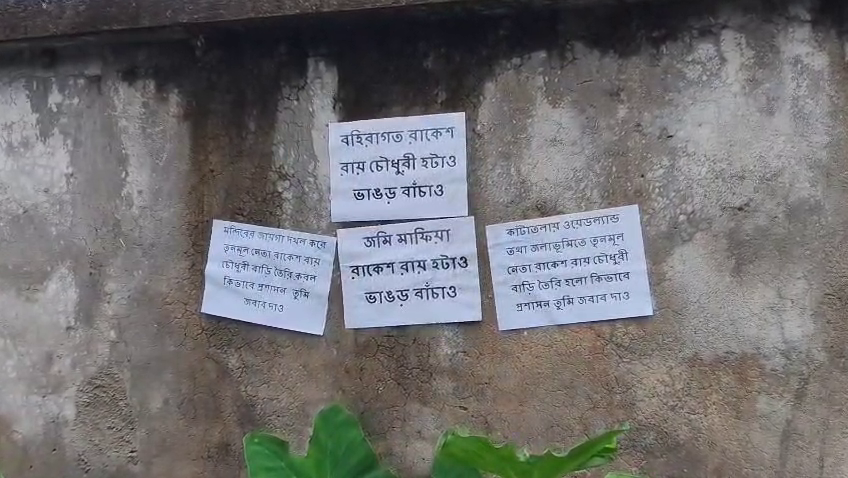 বহিরাগত রাকেশ
রায় চৌধুরী হটাও
ভাঙড় বাঁচাও
মন্দিরের জায়গা দখল করে
তৃনমূল নেতা রাকেশ রায়
চৌধুরী বাড়ি তৈরি করল
কিভাবে প্রশাসন তুমি
জবাব দাও
জমি মাফিয়া
রাকেশ রায় হটাও
ভাঙড় বাঁচাও
কাটাতলায় ওয়েডল্যান্ড
তথা জলাভূমিতে তৃনমূল
নেতা রাকেশ রায় চৌধুরী
বাড়ি তৈরি হলো কিভাবে
প্রশাসন তুমি জবাব দাও